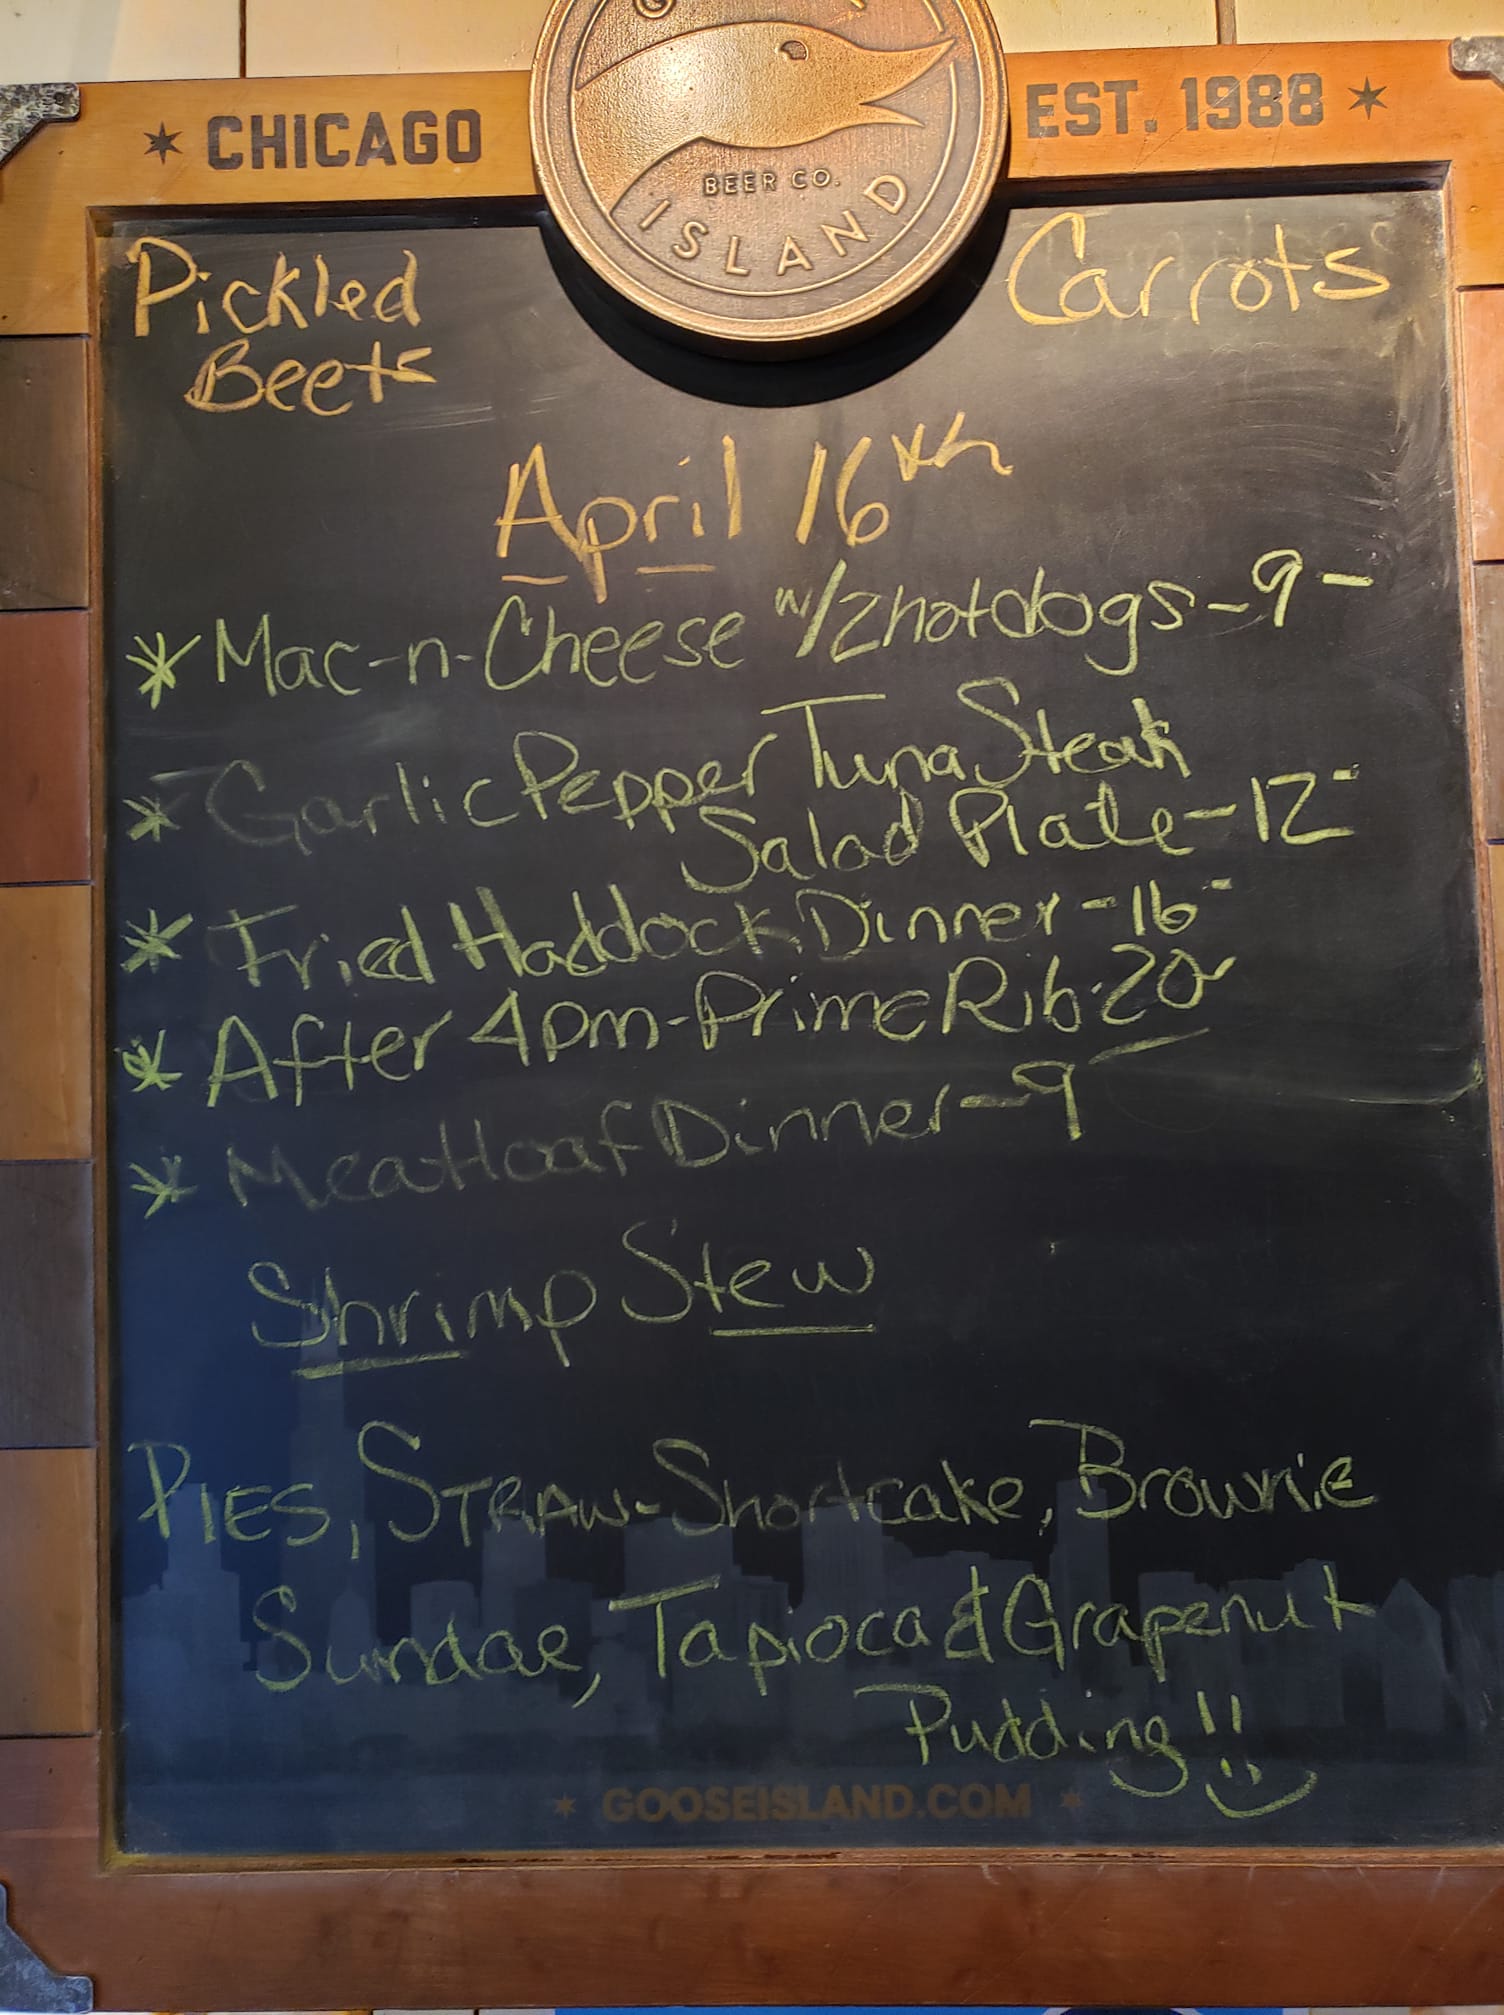 CHICAGO
BEER CO.
ISLAND
EST. 1988
Pickled
Beets
Carrots
April 16th
* Mac-n-Cheese w/2hotdogs-9-
* Garlic Pepper Tuna Steak
Salad Plate-12-
* Fried Haddock Dinner-16-
* After 4pm-Prime Rib-20-
* Meatloaf Dinner-9
Shrimp Stew
PIES, STRAW-Shortcake, Brownie
Sundae, Tapioca & Grapenut
Pudding!!
GOOSEISLAND.COM